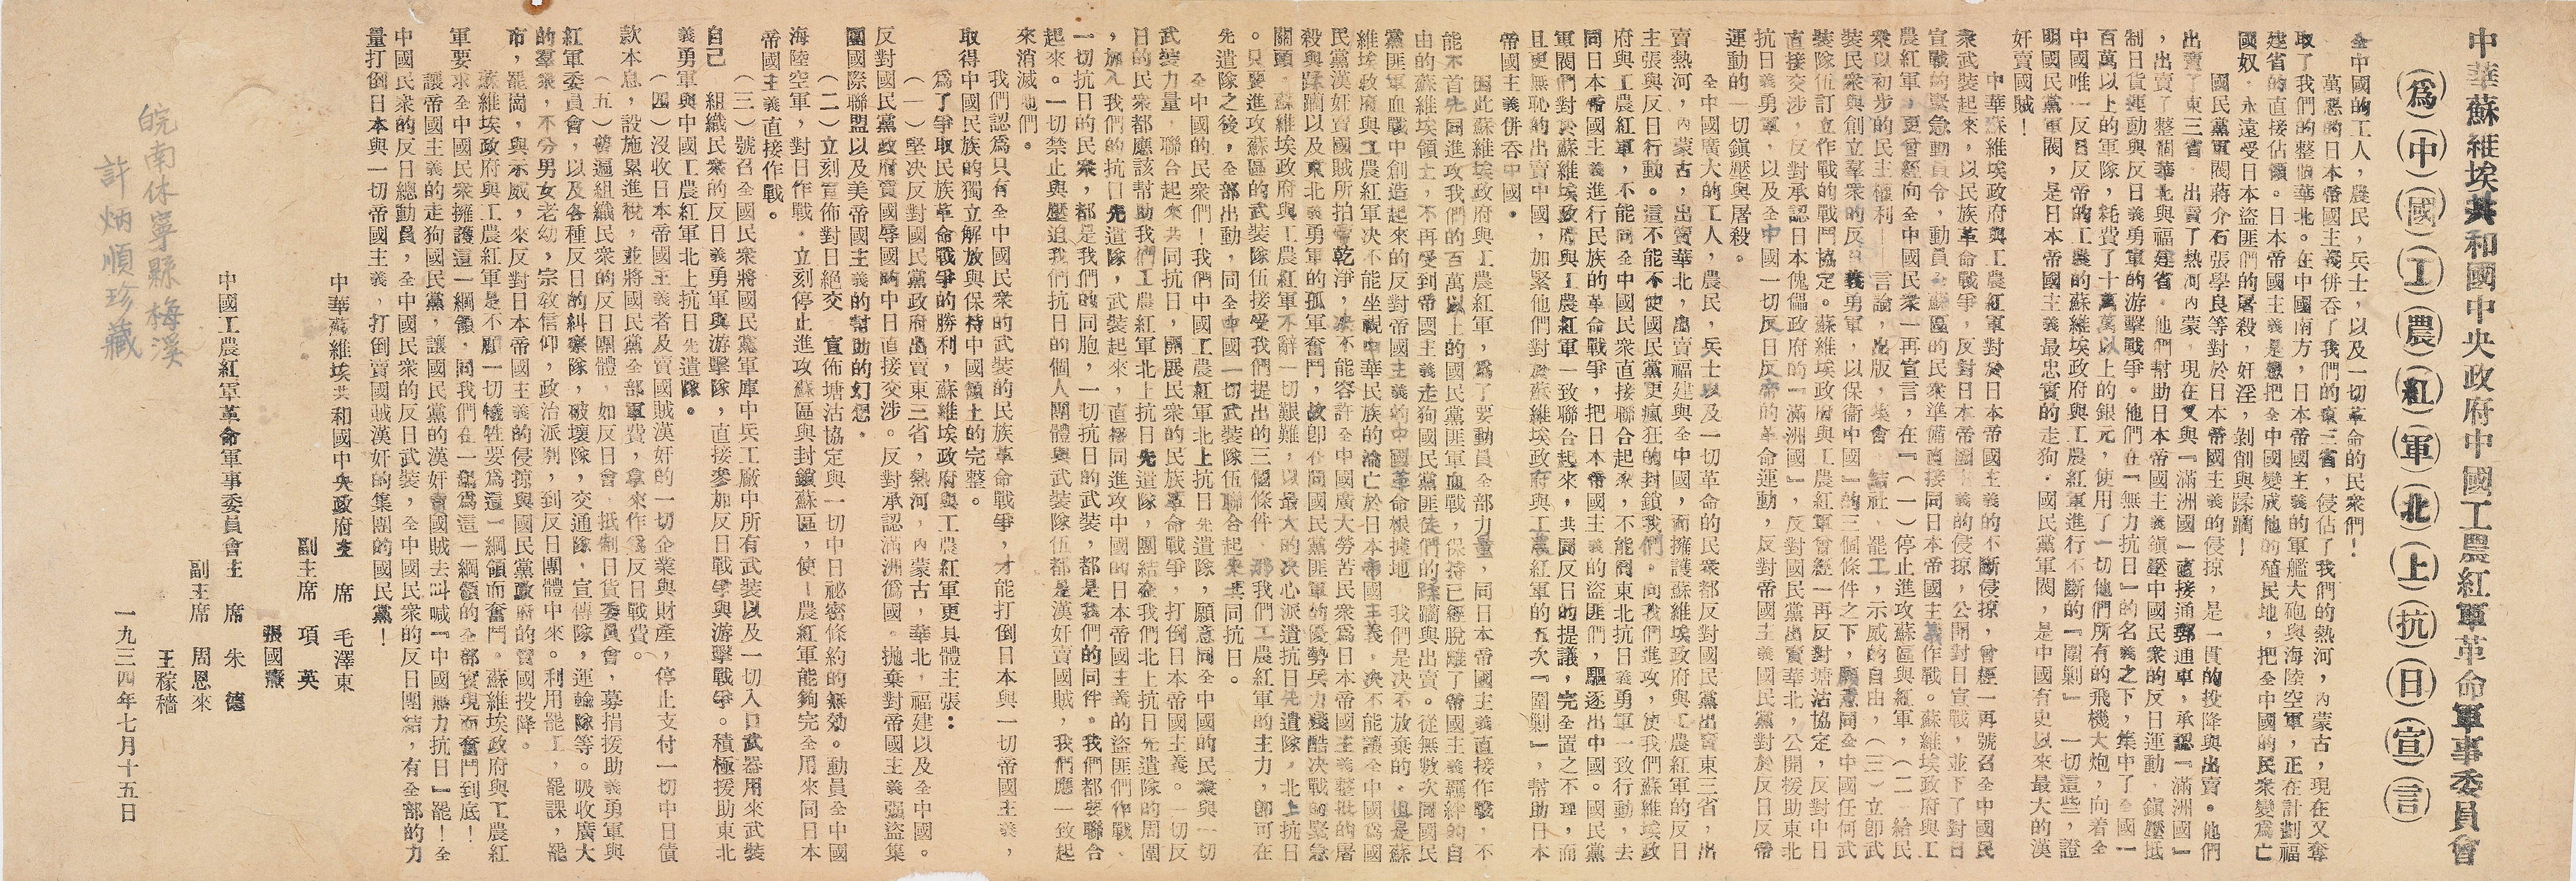 中華蘇維埃共和國中央政府中國工農紅軍革命軍事委員會
為中國工農紅軍北上抗日宣言
全中國的工人，農民，兵士，以及一切革命的民衆們！
萬惡的日本帝國主義併吞了我們的東三省，侵佔了我們的熱河，內蒙古，現在又奪
取了我們的整個華北。在中國南方，日本帝國主義的軍艦大砲與海陸空軍，正在計劃福
建省的直接佔領。日本帝國主義是想把全中國變成他的殖民地，把全中國的民衆變為亡
國奴，永遠受日本盜匪們的屠殺，奸淫，剝削與蹂躪！
國民黨軍閥蔣介石張學良等對於日本帝國主義的侵掠，是一貫的投降與出賣。他們
出賣了東三省，出賣了熱河內蒙，現在又與『滿洲國』直接通郵通車，承認『滿洲國』
，出賣了整個華北與福建省。他們幫助日本帝國主義鎮壓中國民衆的反日運動，鎮壓抵
制日貨運動與反日義勇軍的游擊戰爭。他們在『無力抗日』的名義之下，集中了全國一
百萬以上的軍隊，耗費了十萬萬以上的銀元，使用了一切他們所有的飛機大炮，向着全
中國唯一反日反帝的工農的蘇維埃政府與工農紅軍進行不斷的『圍剿』。一切這些，證
明國民黨軍閥，是日本帝國主義最忠實的走狗。國民黨軍閥，是中國有史以來最大的漢
奸賣國賊！
中華蘇維埃政府與工農紅軍對於日本帝國主義的不斷侵掠，曾經一再號召全中國民
衆武裝起來，以民族革命戰爭，反對日本帝國主義的侵掠，公開對日宣戰，並下了對日
宣戰的緊急動員令，動員全蘇區的民衆準備直接同日本帝國主義作戰。蘇維埃政府與工
農紅軍，更曾經向全中國民衆一再宣言，在『（一）停止進攻蘇區與紅軍，（二）給民
衆以初步的民主權利——言論，出版，集會，結社，罷工，示威的自由，（三）立即武
裝民衆與創立羣衆的反日義勇軍，以保衛中國』的三個條件之下，願意同全中國任何武
裝隊伍訂立作戰的戰鬥協定。蘇維埃政府與工農紅軍曾經一再反對塘沽協定，反對中日
直接交涉，反對承認日本傀儡政府的『滿洲國』，反對國民黨出賣華北，公開援助東北
抗日義勇軍，以及全中國一切反日反帝的革命運動，反對帝國主義國民黨對於反日反帝
運動的一切鎮壓與屠殺。
全中國廣大的工人，農民，兵士以及一切革命的民衆都反對國民黨出賣東三省，出
賣熱河，內蒙古，出賣華北，出賣福建與全中國，而擁護蘇維埃政府與工農紅軍的反日
主張與反日行動。這不能不使國民黨更瘋狂的封鎖我們，向我們進攻，使我們蘇維埃政
府與工農紅軍，不能同全中國民衆直接聯合起來，不能同東北抗日義勇軍一致行動，去
同日本帝國主義進行民族的革命戰爭，把日本帝國主義的盜匪們，驅逐出中國。國民黨
軍閥們對於蘇維埃政府與工農紅軍一致聯合起來，共同反日的提議，完全置之不理，而
且更無恥的出賣中國，加緊他們對於蘇維埃政府與工農紅軍的五次『圍剿』，幫助日本
帝國主義併吞中國。
因此蘇維埃政府與工農紅軍，為了要動員全部力量，同日本帝國主義直接作戰，不
能不首先同進攻我們的百萬以上的國民黨匪軍血戰，保持已經脫離了帝國主義羈絆的自
由的蘇維埃領土，不再受到帝國主義走狗國民黨匪徒們的蹂躪與出賣。從無數次同國民
黨匪軍血戰中創造起來的反對帝國主義的中國革命根據地，我們是決不放棄的。但是蘇
維埃政府與工農紅軍決不能坐視中華民族的淪亡於日本帝國主義，決不能讓全中國為國
民黨漢奸賣國賊所拍賣乾淨，決不能容許全中國廣大勞苦民衆為日本帝國主義整批的屠
殺與蹂躪以及東北義勇軍的孤軍奮鬥，故即在同國民黨匪軍的優勢兵力殘酷決戰的緊急
關頭，蘇維埃政府與工農紅軍不辭一切艱難，以最大的決心派遣抗日先遣隊，北上抗日
。只要進攻蘇區的武裝隊伍接受我們提出的三個條件，那我們工農紅軍的主力，即可在
先遣隊之後，全部出動，同全中國一切武裝隊伍聯合起來共同抗日。
全中國的民衆們！我們中國工農紅軍北上抗日先遣隊，願意同全中國的民衆與一切
武裝力量，聯合起來共同抗日，開展民衆的民族革命戰爭，打倒日本帝國主義。一切反
日的民衆都應該幫助我們工農紅軍北上抗日先遣隊，團結在我們北上抗日先遣隊的周圍
，加入我們的抗日先遣隊，武裝起來，直接同進攻中國的日本帝國主義的盜匪們作戰。
一切抗日的民衆，都是我們的同胞，一切抗日的武裝，都是我們的同伴。我們都要聯合
起來。一切禁止與壓迫我們抗日的個人團體與武裝隊伍都是漢奸賣國賊，我們應一致起
來消滅他們。
我們認為只有全中國民衆的武裝的民族革命戰爭，才能打倒日本與一切帝國主義，
取得中國民族的獨立解放與保持中國領土的完整。
為了爭取民族革命戰爭的勝利，蘇維埃政府與工農紅軍更具體主張：
（一）堅決反對國民黨政府出賣東三省，熱河，內蒙古，華北，福建以及全中國。
反對國民黨政府賣國辱國的中日直接交涉。反對承認滿洲偽國。拋棄對帝國主義強盜集
團國際聯盟以及美帝國主義的幫助的幻想。
（二）立刻宣佈對日絕交，宣佈塘沽協定與一切中日祕密條約的無効。動員全中國
海陸空軍，對日作戰。立刻停止進攻蘇區與封鎖蘇區，使工農紅軍能夠完全用來同日本
帝國主義直接作戰。
（三）號召全國民衆將國民黨軍庫中兵工廠中所有武裝以及一切入口武器用來武裝
自己，組織民衆的反日義勇軍與游擊隊，直接參加反日戰爭與游擊戰爭。積極援助東北
義勇軍與中國工農紅軍北上抗日先遣隊。
（四）沒收日本帝國主義者及賣國賊漢奸的一切企業與財產，停止支付一切中日債
款本息，設施累進稅，並將國民黨全部軍費，拿來作為反日戰費。
（五）普遍組織民衆的反日團體，如反日會，抵制日貨委員會，募捐援助義勇軍與
紅軍委員會，以及各種反日的糾察隊，破壞隊，交通隊，宣傳隊，運輸隊等。吸收廣大
的羣衆，不分男女老幼，宗敎信仰，政治派別，到反日團體中來。利用罷工，罷課，罷
市，罷崗，與示威，來反對日本帝國主義的侵掠與國民黨政府的賣國投降。
蘇維埃政府與工農紅軍是不顧一切犧牲要為這一綱領而奮鬥。蘇維埃政府與工農紅
軍要求全中國民衆擁護這一綱領，同我們在一起為這一綱領的全部實現而奮鬥到底！
讓帝國主義的走狗國民黨，讓國民黨的漢奸賣國賊去叫喊『中國無力抗日』罷！全
中國民衆的反日總動員，全中國民衆的反日武裝，全中國民衆的反日團結，有全部的力
量打倒日本與一切帝國主義，打倒賣國賊漢奸的集團的國民黨！
中華蘇維埃共和國中央政府主席 毛澤東
副主席 項英
張國燾
中國工農紅軍革命軍事委員會主席 朱德
副主席 周恩來
王稼穡
一九三四年七月十五日
皖南休寧縣梅溪
許炳順珍藏